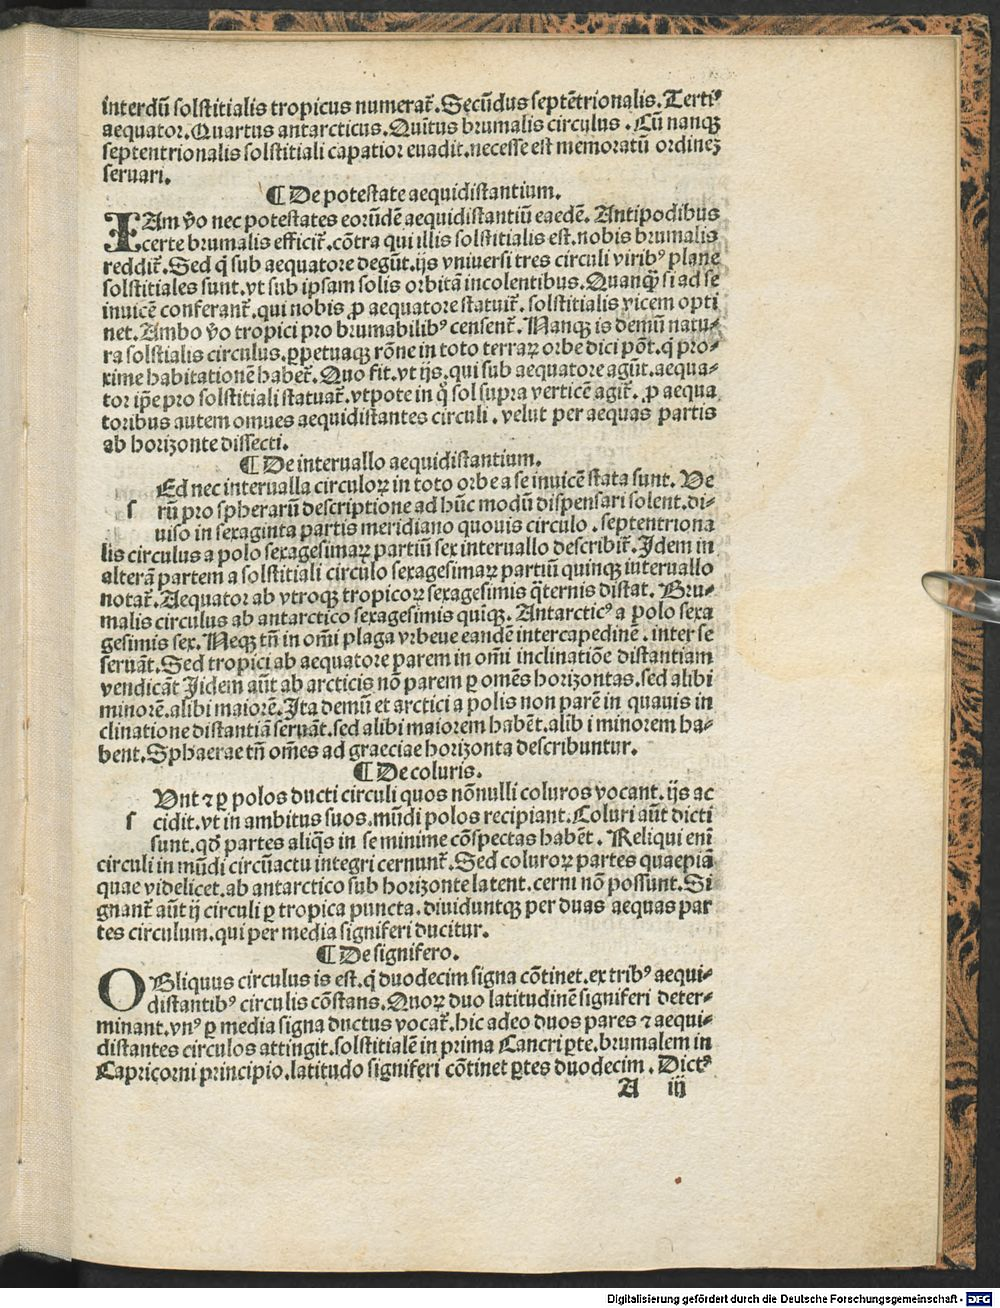 interdū solstitialis tropicus numerat̄. Secūdus septētrionalis. Tertiꝰ
aequator. Quartus antarcticus. Quītus brumalis circulus. Cū nanqꝫ
septentrionalis solstitiali capatior euadit. necesse est memoratū ordineꝫ
seruari.
¶ De potestate aequidistantium.
IAm v̄o nec potestates eorūdē aequidistantiū eaedē. Antipodibus
certe brumalis efficit̄. cōtra qui illis solstitialis est. nobis brumalis
reddit̄. Sed q̄ sub aequatore degūt. ijs vniuersi tres circuli viribꝰ plane
solstitiales sunt. vt sub ipsam solis orbitā incolentibus. Quanqꝫ si ad se
inuicē conferant̄. qui nobis ꝓ aequatore statuit̄. solstitialis vicem opti
net. Ambo v̄o tropici pro brumabilibꝰ censent̄. Nanque is demū natu⸗
ra solstialis circulus. ꝑpetuaqꝫ rōne in toto terraꝝ orbe dici pōt. q̄ pro⸗
xime habitationē habet̄. Quo fit. vt ijs. qui sub aequatore agūt. aequa⸗
tor ip̄e pro solstitiali statuat̄. vtpote in q̊ sol supra verticē agit̄. ꝓ aequa
toribus autem omues aequidistantes circuli. velut per aequas partis
ab horizonte dissecti.
¶ De interuallo aequidistantium.
Ed nec interualla circuloꝝ in toto orbe a se inuicē stata sunt. Ve
s rū pro spherarū descriptione ad hūc modū dispensari solent. di⸗
uiso in sexaginta partis meridiano quouis circulo. septentriona
lis circulus a polo sexagesimaꝝ partiū sex interuallo describit̄. Idem in
alterā partem a solstitiali circulo sexagesimaꝝ partiū quinqꝫ interuallo
notat̄. Aequator ab vtroqꝫ tropicoꝝ sexagesimis q̄ternis distat. Bru⸗
malis circulus ab antarctico sexagesimis quīqꝫ. Antarcticꝰ a polo sexa
gesimis sex. Neqꝫ tn̄ in om̄i plaga vrbeue eandē intercapedinē. inter se
seruāt. Sed tropici ab aequatore parem in om̄i inclinatiōe distantiam
vendicāt Iidem aūt ab arcticis nō parem ꝑ omēs horizontas. sed alibi
minorē. alibi maiorē. Ita demū et arctici a polis non parē in quauis in
clinatione distantiā seruāt. sed alibi maiorem habēt. alib i minorem ha⸗
bent. Sphaerae tn̄ om̄es ad graeciae horizonta describuntur.
¶ De coluris.
Vnt ⁊ ꝑ polos ducti circuli quos nōnulli coluros vocant. ijs ac
s cidit. vt in ambitus suos. mūdi polos recipiant. Coluri aūt dicti
sunt. qd̄ partes aliq̄s in se minime cōspectas habēt. Reliqui enī
circuli in mūdi circūactu integri cernunt̄. Sed coluroꝝ partes quaepiā
quae videlicet. ab antarctico sub horizonte latent. cerni nō possunt. Si
gnant̄ aūt ij circuli ꝑ tropica puncta. diuiduntqꝫ per duas aequas par
tes circulum. qui per media signiferi ducitur.
¶ De signifero.
OBliquus circulus is est. q̄ duodecim signa cōtinet. ex tribꝰ aequi⸗
distantibꝰ circulis cōstans. Quoꝝ duo latitudinē signiferi deter⸗
minant. vnꝰ ꝑ media signa ductus vocat̄. hic adeo duos pares ⁊ aequi⸗
distantes circulos attingit. solstitialē in prima Cancri ꝑte. brumalem in
Capricorni principio. latitudo signiferi cōtinet ꝑtes duodecim. Dictꝰ
A iij
Digitalisierung gefördert durch die Deutsche Forschungsgemeinschaft - DFG